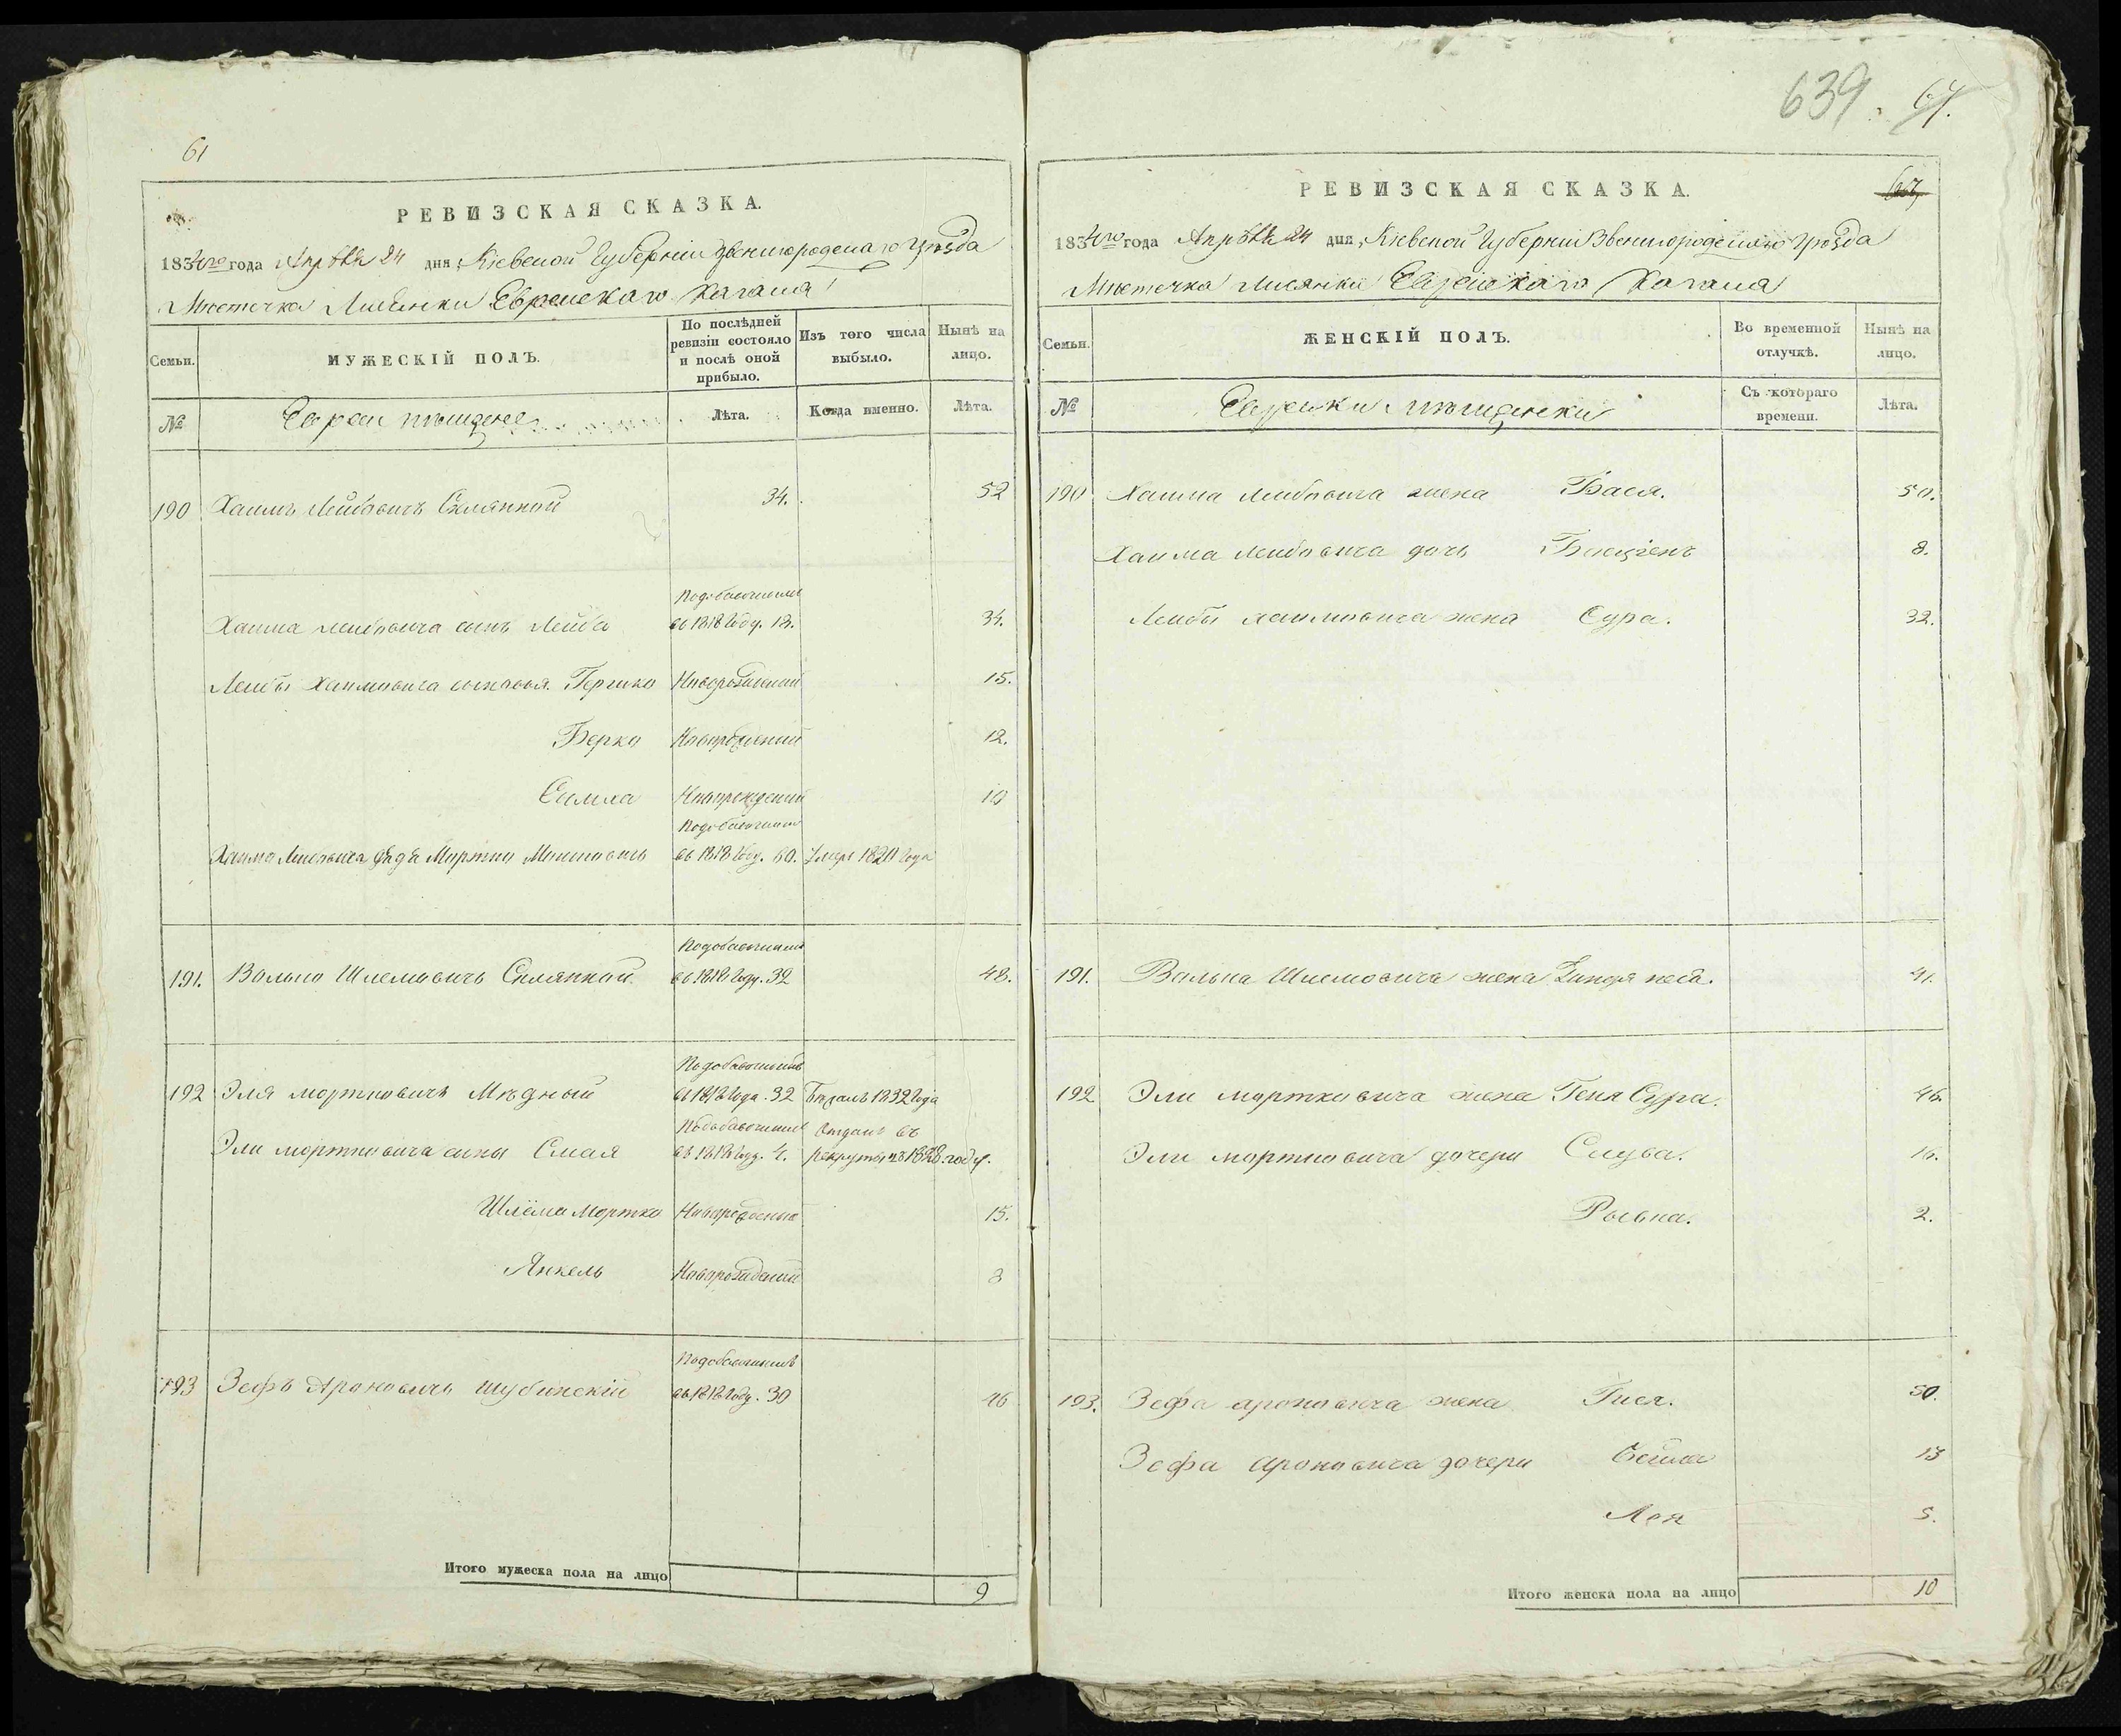 61
РЕВИЗСКАЯ СКАЗКА.
1834го года Апрѣля 24 дня, Кіевской Губерніи Звенигородскаго Уѣзда
Мѣстечка Лисянки Еврейскаго Кагала
Семьи.
МУЖЕСКІЙ ПОЛЪ.
По послѣдней ревизіи состояло и послѣ оной прибыло.
Изъ того числа выбыло.
Нынѣ на лицо.
№
Евреи мѣщане
Лѣта.
Когда именно.
Лѣта.
190 Хаимъ Лейбовичъ Склянной 34. 52
Подобавочными
Хаима Лейбовича сынъ Лейба въ 1818 Году. 18. 34.
Лейбы Хаимовича сыновья. Гершко Новорожденный 15.
Берко Новорожденный 12.
Симха Новорожденный 10
Подобавочными
Хаима Лейбовича дѣдъ Мортко въ 1818 Году. 60. Умеръ 1820 Года
Подобавочными
191. Волько Шлемовичъ Склянной. въ 1818 Году. 32 48.
Подобавочными
192 Эля Мортковичъ Мѣдный въ 1818 Года. 32 1832 Года
Подобавочными Отданъ въ
Эли Мортковича сыны Смая въ 1818 Году. 4. рекруты въ 1828 году.
Шлёма Мортко Новорожденный 15.
Янкель Новорожденный 8
Подобавочными
193 Зефъ Ароновичъ Шубинскій въ 1818 Году. 30 46
Итого мужеска пола на лицо 9
639. 67.
РЕВИЗСКАЯ СКАЗКА.
1834го года Апрѣля 24 дня, Кіевской Губерніи Звенигородскаго Уѣзда
Мѣстечка Лисянки Еврейскаго Кагала
Семьи.
ЖЕНСКІЙ ПОЛЪ.
Во временной отлучкѣ.
Нынѣ на лицо.
№
Еврейки мѣщанки
Съ котораго времени.
Лѣта.
190 Хаима Лейбовича жена Бася. 50.
Хаима Лейбовича дочь 8.
Лейбы Хаимовича жена Сура. 32.
191. Волька Шлемовича жена 41.
192 Эли Мортковича жена Геня Сура. 46.
Эли Мортковича дочери 16.
2.
193. Зефа Ароновича жена Гися. 30.
Зефа Ароновича дочери Бейла 13
Лея 5.
Итого женска пола на лицо 10